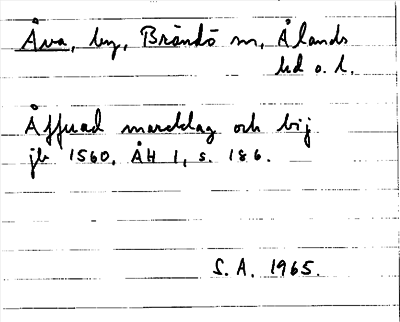 Åva, by, Brändö sn, Ålands
hd o. l.
Åffuad marcklag och bij
jb 1560. ÅH 1, s. 186.
S. A. 1965.